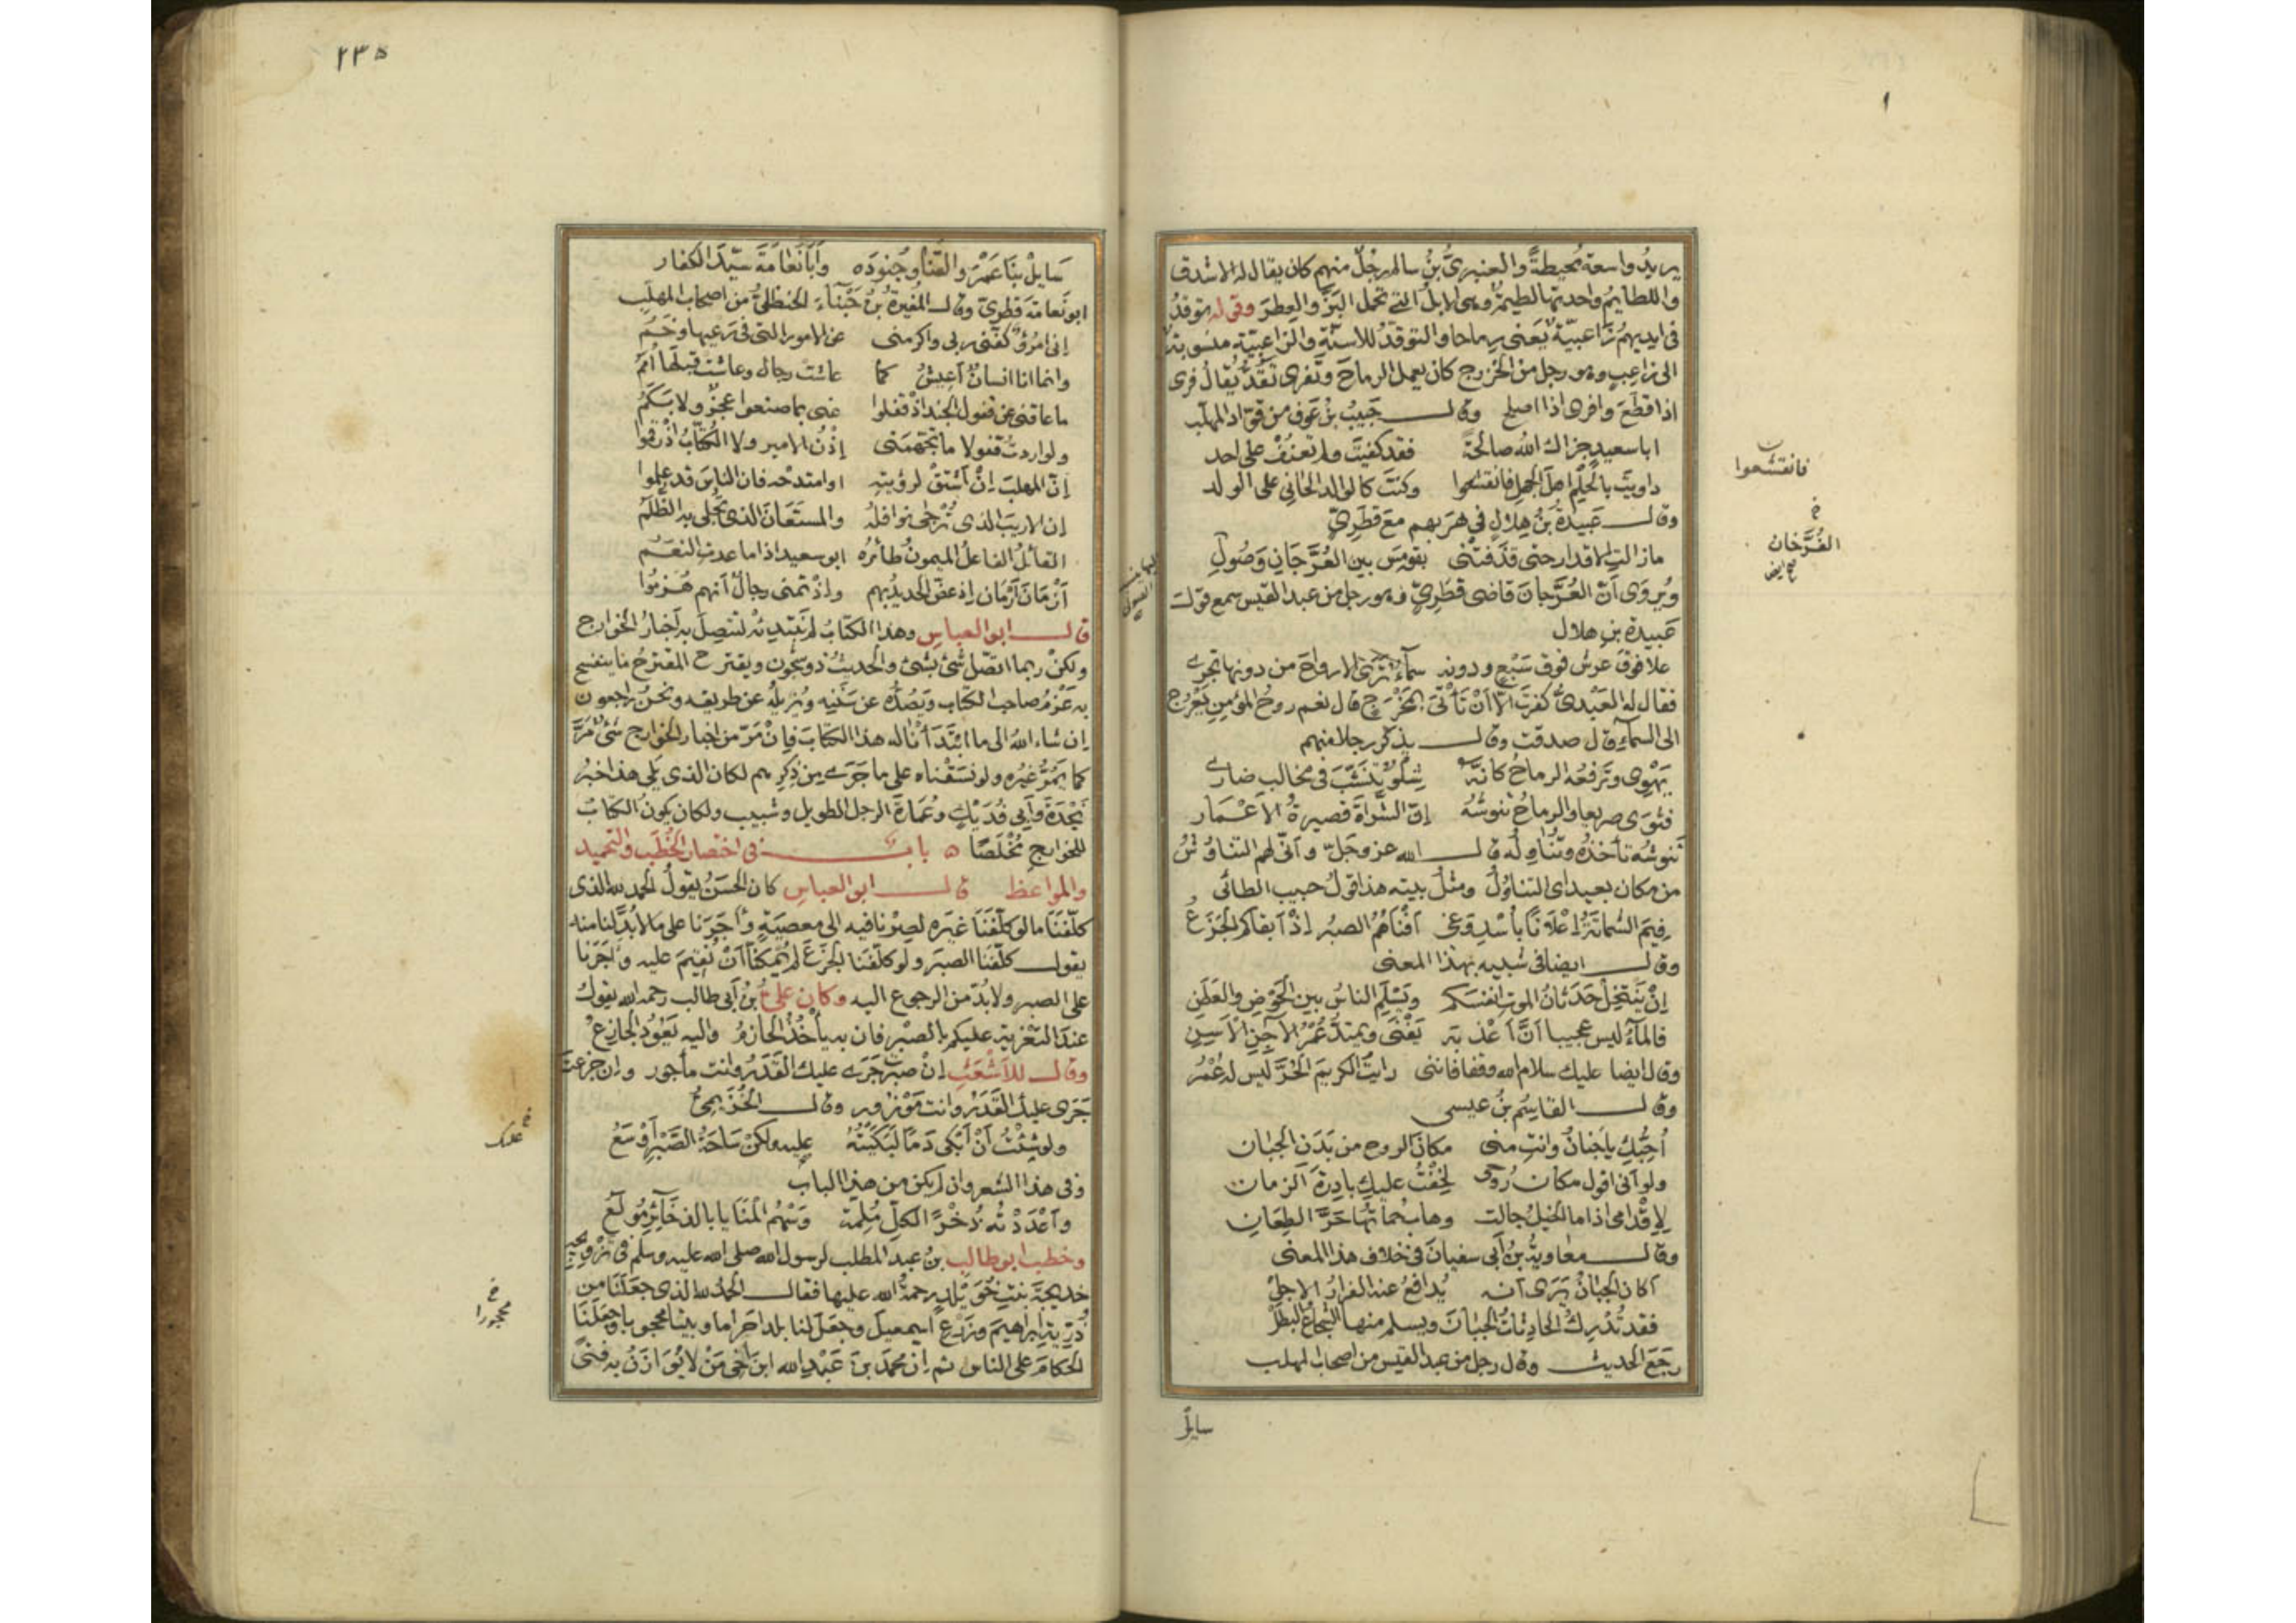 يريد واسعة محيطة والعنبرىّ بن سالم رجل منهم كان يقال له الاشدق
واللطايم واحدتها لطيمة وهى الابل التى تحمل البزّ والعطر وقوله توقد
فى ايديهم زاعبيّة يعنى رماحا والتوقد للاسنّة والزاعبيّة منسوبة
الى زاعب وهو رجل من الخزرج كان يعمل الرماح وتفرى تقدّ يقال فرى
اذا قطع وافرى اذا اصلح وقال حبيب بن عوف من قوّاد المهلّب
ابا سعيد جزاك الله صالحة فقد كفيت ولم تعنف على احد
داويت بالحلم اهل الجهل فانقشعوا وكنت كالوالد الحانى على الولد
وقال عبيدة بن هلال فى هربهم مع قطرىّ
مازالت الاقدار حتى قذفتنى بقومس بين الفرّجان وصول
ويروى انّ الفرّجان قاضى قطرىّ وهو رجل من عبد القيس سمع قول
عبيدة بن هلال
علا فوق عرش فوق سبع ودونه سمآء ترى الارواح من دونها تجرى
فقال له العبدىّ كفرت الّا ان تأتى بمخرج قال نعم روح المؤمن تعرج
الى السمآء قال صدقت وقال يذكر رجلا منهم
يهوى وترفعه الرماح كانّه شلو تنشّب فى مخالب ضارى
فثوى صريعا والرماح تنوشه انّ الشراة قصيرة الاعمار
تنوشه تأخذه وتناوله قال الله عز وجلّ وانّى لهم التناوش
من مكان بعيد اى التناول ومثل بيته هذا قول حبيب الطائى
فيم الشماتة اعلانا بأسد وغى افناهم الصبر اذ ابقاكم الجزع
وقال ايضا فى شبيه بهذا المعنى
ان ينتخل حدثان الموت انفسكم ويسلم الناس بين الحوض والعطن
فالمآء ليس عجيبا انّ اعذبه يفنى ويمتدّ عمر الآجن الاسن
وقال ايضا عليك سلام الله وقفا فاننى رايت الكريم الحرّ ليس له عمر
وقال القاسم بن عيسى
احبّك يا جنان وانت منى مكان الروح من بدن الجبان
ولو انى اقول مكان روحى لخفت عليك بادرة الزمان
لاقدامى اذا ما الخيل جالت وهاب حماتها حرّ الطعان
وقال معاوية بن أبى سفيان فى خلاف هذا المعنى
أكان الجبان يرى انه يدافع عنه الفرار الاجل
فقد تدرك الحادثات الجبان ويسلم منها الشجاع البطل
رجع الحديث وقال رجل من عبد القيس من اصحاب المهلب
سايل
فانقشعوا
الفرّخان
٢٣٥
سايل بنا عمرو القنا وجنوده وأبا نعامة سيّد الكفار
ابو نعامة قطرىّ وقال المغيرة بن حبنآء الحنظلىّ من اصحاب المهلب
انى امرؤ كفّنى ربى واكرمنى عن الامور التى فى رعيها وخم
وانما انا انسان اعيش كما عاشت رجال وعاشت قبلها امم
ما عاقنى عن قفول الجند اذ قفلوا عنى بما صنعوا عجز ولا بكم
ولو اردت قفولا ما تجهّمنى اذن الامير ولا الكتّاب اذ رقموا
انّ المهلب ان اشتق لرؤيته او امتدحه فان الناس قد علموا
ان الاريب الذى ترجى نوافله والمستعان الذى تجلى به الظلم
القائل الفاعل الميمون طائره ابو سعيد اذا ما عدت النعم
ازمان ازمان اذ عضّ الحديد بهم واذ تمنى رجال أنهم هزموا
قال ابو العباس وهذا الكتاب لم نبتدئه لتتصل به اخبار الخوارج
ولكن ربما اتّصل شئ بشئ والحديث ذو شجون ويقترح المقترح ما ينفسخ
به عزم صاحب الكتاب ويصدّه عن سننه ويزيله عن طريقه ونحن راجعون
ان شاء الله الى ما ابتدأنا له هذا الكتاب فان مرّ من اخبار الخوارج شئ مرّ
كما يمرّ غيره ولو نسقناه على ما جرى من ذكرهم لكان الذى يلى هذا خبر
نجدة وأبى فديك وعمارة الرجل الطويل وشبيب ولكان يكون الكتاب
للخوارج مخلصا ه باب فى اختصار الخطب والتحميد
والمواعظ قال ابو العباس كان الحسن يقول الحمد لله الذى
كلّفنا ما لو كلّفنا غيره لصرنا فيه الى معصيته وأجرنا على ما لابدّ لنا منه
يقول كلّفنا الصبر ولو كلّفنا الجزع لم يمكنّا أن نقيم عليه وأجرنا
على الصبر ولابدّ من الرجوع اليه وكان علىّ بن أبى طالب رحمه الله يقول
عند التعزية عليكم بالصبر فان به يأخذ الحازم واليه يعود الجازع
وقال للاشعث ان صبرت جرى عليك القدر وانت مأجور وان جزعت
جرى عليك القدر وانت موزور وقال الخزيمىّ
ولو شئت أن أبكى دما لبكيته عليه ولكن ساحة الصبر أوسع
وفى هذا الشعر وان لم يكن من هذا الباب
وأعددته ذخرا لكلّ ملمة وسهم المنايا بالذخآئر مولع
وخطب ابو طالب بن عبد المطلب لرسول الله صلى الله عليه وسلم فى تزويجه
خديجة بنت خويلد رحمة الله عليها فقال الحمد لله الذى جعلنا من
ذرّيّة ابراهيم وزرع اسمعيل وجعل لنا بلدا حراما وبيتا محجوبا وجعلنا
الحكام على الناس ثم ان محمد بن عبد الله ابن أخى من لا يوازن به فتى
عليك
محجورا